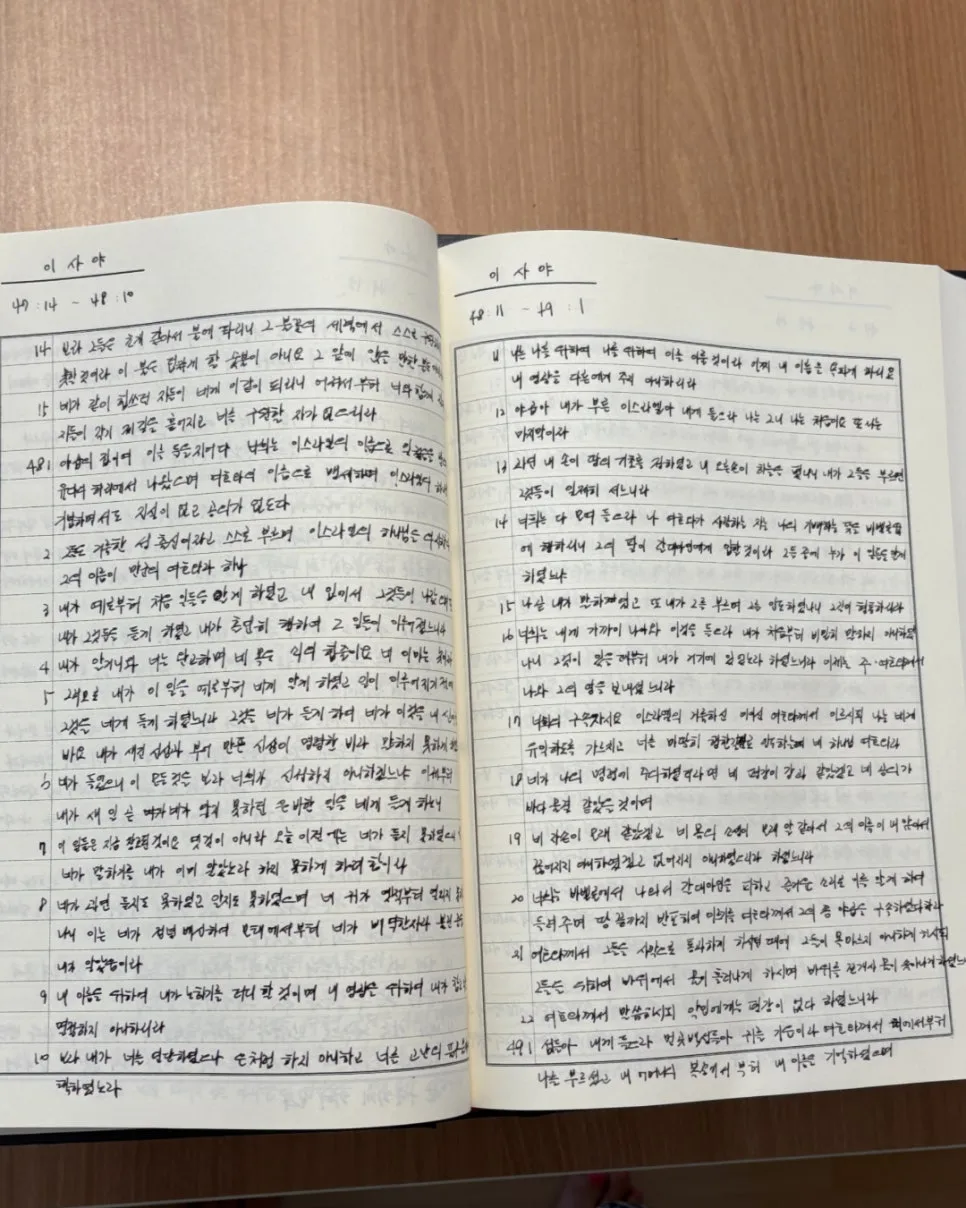 이사야
47:14 ~ 48:10
14 보라 그들은 초개 같아서 불에 타리니 그 불꽃의 세력에서 스스로
못할 것이라 이 불은 덥게 할 숯불이 아니요 그 앞에 앉을 만한 불도
15 네가 같이 힘쓰던 자들이 네게 이같이 되리니 어려서부터 너와 함께
자들이 각기 제 길로 흩어지고 너를 구원할 자가 없으리라
48 1 야곱의 집이여 이를 들을지어다 너희는 이스라엘의 이름으로 일컬음을
유다의 허리에서 나왔으며 여호와의 이름으로 맹세하며 이스라엘의
기념하면서도 진실이 없고 공의가 없도다
2 그들은 거룩한 성 출신이라고 스스로 부르며 이스라엘의 하나님을
그의 이름이 만군의 여호와라 하나
3 내가 예로부터 처음 일들을 알게 하였고 내 입에서 그것들이
내가 그것들을 듣게 하였고 내가 홀연히 행하여 그 일들이 이루어졌느니라
4 내가 알거니와 너는 완고하며 네 목은 쇠의 힘줄이요 네 이마는
5 그러므로 내가 이 일을 예로부터 네게 알게 하였고 일이 이루어지기 전에
그것을 네게 듣게 하였느니라 그것을 네가 듣게 하여 네가 이것을 내 신이
바요 내가 새긴 신상과 부어 만든 신상이 명령한 바라 말하지 못하게
6 네가 들었으니 이 모든 것을 보라 너희가 선전하지 아니하겠느냐 이제부터
내가 새 일 곧 네가 알지 못하던 은비한 일을 네게 듣게 하노니
7 이 일들은 지금 창조된 것이요 옛것이 아니라 오늘 이전에는 네가 듣지 못하였으니
네가 말하기를 내가 이미 알았노라 하지 못하게 하려 함이라
8 네가 과연 듣지도 못하였고 알지도 못하였으며 네 귀가 옛적부터 열리지
나니 이는 네가 정녕 배신하여 모태에서부터 네가 배역한 자라 불린
내가 알았음이라
9 내 이름을 위하여 내가 노하기를 더디 할 것이며 내 영광을 위하여 내가
멸절하지 아니하리라
10 보라 내가 너를 연단하였으나 은처럼 하지 아니하고 너를 고난의
택하였노라
이사야
48:11 ~ 49:1
11 나는 나를 위하여 나를 위하여 이를 이룰 것이라 어찌 내 이름을 욕되게 하리요
내 영광을 다른 에게 주지 아니하리라
12 야곱아 내가 부른 이스라엘아 내게 들으라 나는 그니 나는 처음이요 또 나는
마지막이라
13 과연 내 손이 땅의 기초를 정하였고 내 오른손이 하늘을 폈나니 내가 그들을 부르면
그것들이 일제히 서느니라
14 너희는 다 모여 들으라 나 여호와가 사랑하는 자는 나의 기뻐하는 뜻을 바벨론
에 행하리니 그의 팔이 갈대아인에게 임할 것이라 그들 중에 누가 이 일들을 알게
하였느냐
15 나 곧 내가 말하였고 또 내가 그를 부르며 그를 인도하였나니 그 길이 형통하리라
16 너희는 내게 가까이 나아와 이것을 들으라 내가 처음부터 비밀히 말하지 아니하였
나니 그것이 있을 때부터 내가 거기에 있었노라 하셨느니라 이제는 주 여호와께서
나와 그의 영을 보내셨느니라
17 너희의 구속자시요 이스라엘의 거룩하신 이이신 여호와께서 이르시되 나는 네게
유익하도록 가르치고 너를 마땅히 행할 길로 인도하는 네 하나님 여호와라
18 네가 나의 명령에 주의하였더라면 네 평강이 강과 같았겠고 네 공의가
바다 물결 같았을 것이며
19 네 자손이 모래 같았겠고 네 몸의 소생이 모래 알 같아서 그의 이름이 내 앞에서
끊어지지 아니하였겠고 없어지지 아니하였으리라 하셨느니라
20 너희는 바벨론에서 나와서 갈대아인을 피하고 즐거운 소리로 이를 알게 하여
들려 주며 땅 끝까지 반포하여 이르기를 여호와께서 그의 종 야곱을 구속하셨다 하라
21 여호와께서 그들을 사막으로 통과하게 하시던 때에 그들이 목마르지 아니하게 하시되
그들을 위하여 바위에서 물이 흘러나게 하시며 바위를 쪼개사 물이 솟아나게 하셨느니라
22 여호와께서 말씀하시되 악인에게는 평강이 없다 하셨느니라
49 1 섬들아 내게 들으라 먼 곳 백성들아 귀를 기울이라 여호와께서 태에서부터
나를 부르셨고 내 어머니의 복중에서부터 내 이름을 기억하셨으며